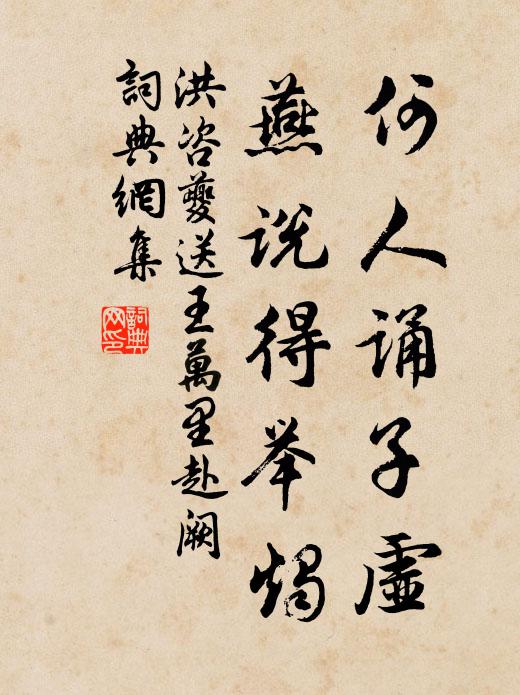 何人诵子虚
燕说得举烛
洪咨夔送王萬里赴阙
詞典網集
詞典网印